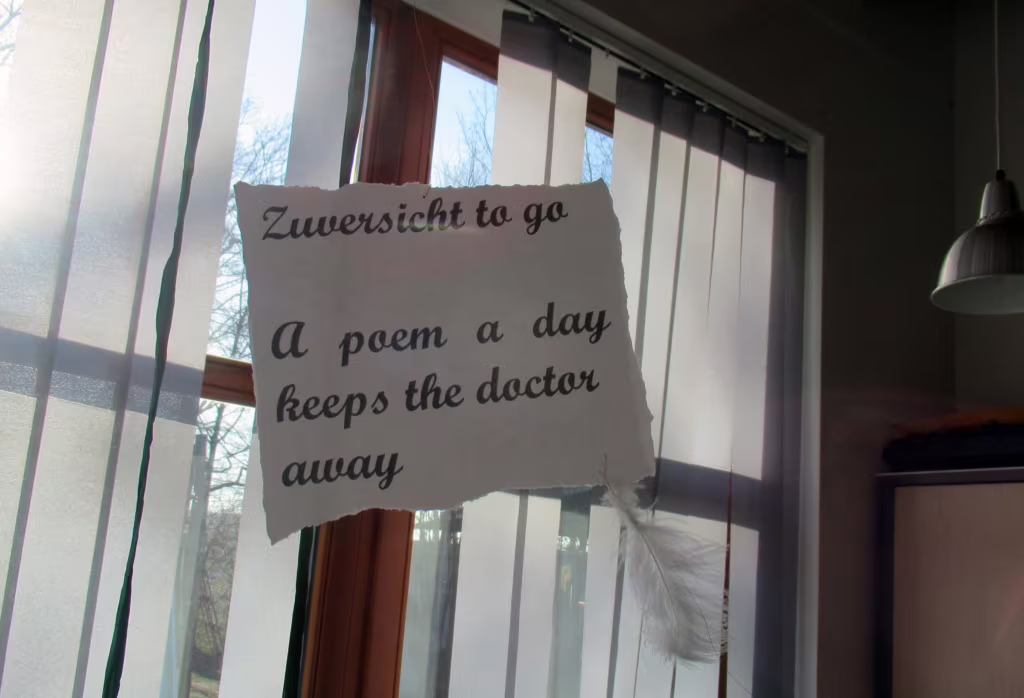 Zuversicht to go
A poem a day
keeps the doctor
away